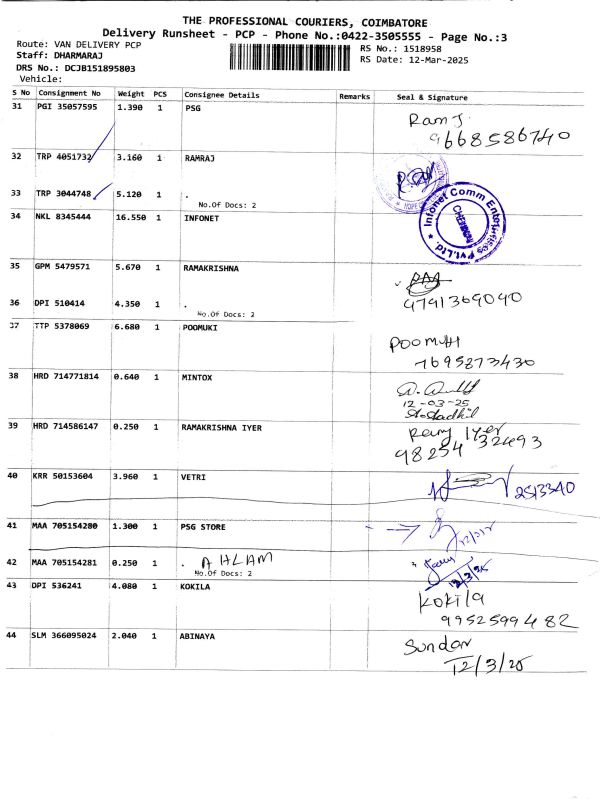 THE PROFESSIONAL COURIERS, COIMBATORE
Delivery Runsheet - PCP - Phone No.:0422-3505555 - Page No.:3
Route: VAN DELIVERY PCP
Staff: DHARMARAJ
DRS No.: DCJB151895803
Vehicle:
RS No.: 1518958
RS Date: 12-Mar-2025
S No Consignment No Weight PCS Consignee Details Remarks Seal & Signature
31 PGI 35057595 1.390 1 PSG
Ram J
9668586740
32 TRP 4051732 3.160 1 RAMRAJ
33 TRP 3044748 5.120 1 .
No.Of Docs: 2
34 NKL 8345444 16.550 1 INFONET
Infonet Comm Enterprises Pvt.Ltd. *
35 GPM 5479571 5.670 1 RAMAKRISHNA
4791369040
36 DPI 510414 4.350 1 .
No.Of Docs: 2
37 TTP 5378069 6.680 1 POOMUKI
POOMUKI
7695873430
38 HRD 714771814 0.640 1 MINTOX
12-03-25
39 HRD 714586147 0.250 1 RAMAKRISHNA IYER
Ramy Iyer
98254 32493
40 KRR 50153604 3.960 1 VETRI
2513340
41 MAA 705154280 1.300 1 PSG STORE
42 MAA 705154281 0.250 1 . AHLAM
No.Of Docs: 2
12/3/25
43 DPI 536241 4.080 1 KOKILA
Kokila
9952599482
44 SLM 366095024 2.040 1 ABINAYA
Sundar
12/3/25